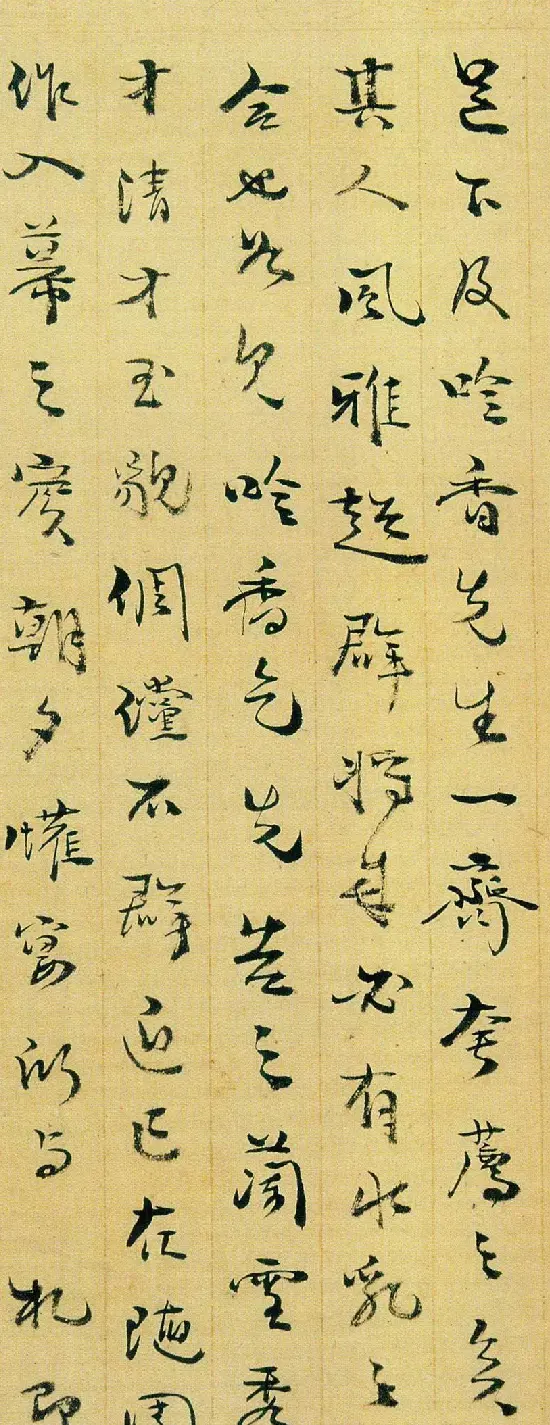 足下及吟香先生一齊奢薦之矣
其人風雅超群將來必有水乳之
合也如見吟香乞先告之蘭雪秀
才清才玉貌倜儻不群近已在隨園
作入幕之賓朝夕懽宴所与札即